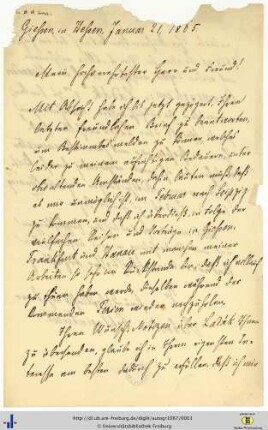 Giessen in Hessen, Januar 21, 1865
Mein hochverehrtester Herr und Freund!
Mit Absicht habe ich bis jetzt gezögert, Ihren
letzten freundlichen Brief zu beantworten,
um Bestimmtes melden zu können, welches
leider zu meinem Bedauern, unter
obwaltenden Umständen, dahin lauten muß, daß
es mir unmöglich ist, im Februar nach Leipzig
zu kommen, und daß ich überdieß, in Folge der
vielfachen Reisen und Vorträge in Giessen,
Frankfurt und Hanau mit manchen meiner
Arbeiten so sehr im Rückstande bin, daß ich
zu thun haben werde, dieselben während der
kommenden Ferien wieder nachzuholen.
Ihren Wunsch, Notizen über Ladâk Ihnen
zu übersenden, glaube ich in Ihrem eigensten In-
teresse am besten dadurch zu erfüllen, daß ich
http://dl.ub.uni-freiburg.de/diglit/autogr1087/0003
© Universitätsbibliothek Freiburg